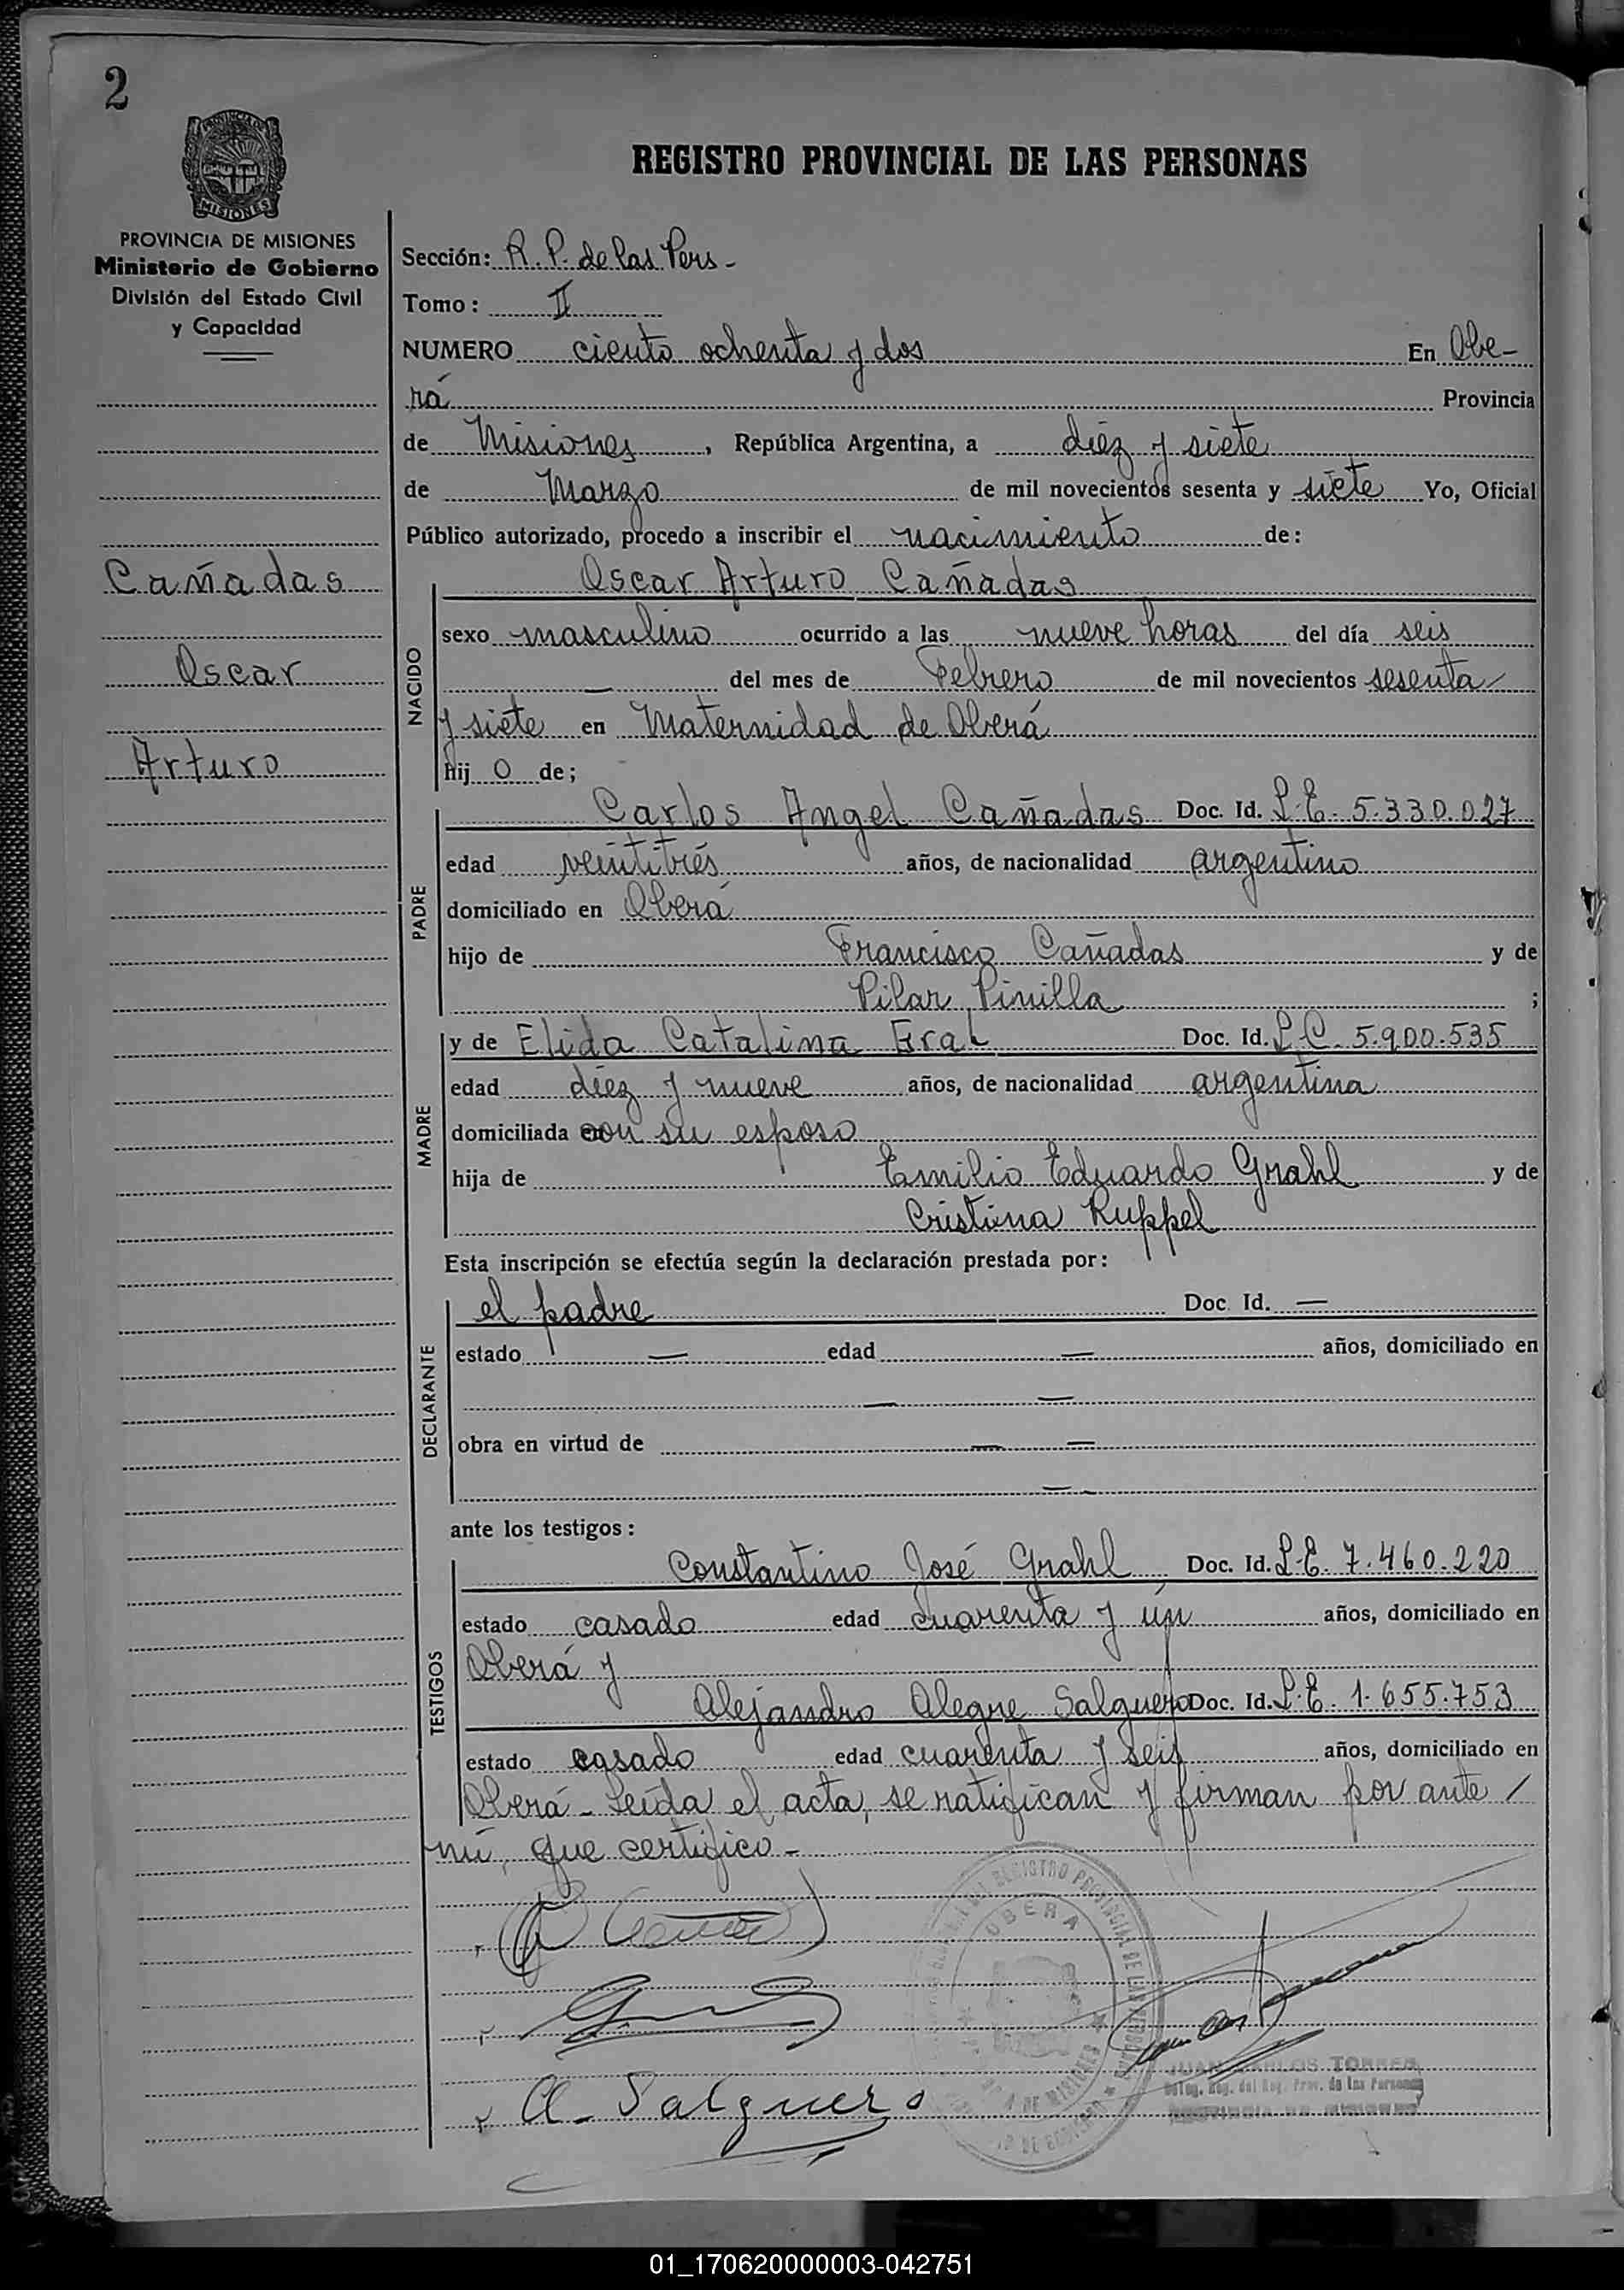 2
REGISTRO PROVINCIAL DE LAS PERSONAS
PROVINCIA DE MISIONES
Ministerio de Gobierno
División del Estado Civil
y Capacidad
Cañadas
Oscar
Arturo
Sección: R. P. de las Pers -
Tomo: II
NUMERO ciento ochenta y dos En Obe-
rá Provincia
de Misiones, República Argentina, a diéz y siete
de Marzo de mil novecientos sesenta y siete Yo, Oficial
Público autorizado, procedo a inscribir el nacimiento de:
NACIDO
Oscar Arturo Cañadas
sexo masculino ocurrido a las nueve horas del día seis
— del mes de Febrero de mil novecientos sesenta/
y siete en Maternidad de Oberá
hij o de;
PADRE
Carlos Angel Cañadas Doc. Id. L.E. 5.330.027
edad veintitrés años, de nacionalidad argentino
domiciliado en Oberá
hijo de Francisco Cañadas y de
Pilar Pinilla ;
MADRE
y de Elida Catalina Gral Doc. Id. L.C. 5.900.535
edad diéz y nueve años, de nacionalidad argentina
domiciliada con su esposo
hija de Emilio Eduardo Grahl y de
Cristina Ruppel
Esta inscripción se efectúa según la declaración prestada por:
DECLARANTE
el padre Doc. Id. —
estado — edad — años, domiciliado en
— —
obra en virtud de — —
—
ante los testigos:
TESTIGOS
Constantino José Grahl Doc. Id. L.E. 7.460.220
estado casado edad cuarenta y ún años, domiciliado en
Oberá y
Alejandro Alegre Salguero Doc. Id. L.E. 1.655.753
estado casado edad cuarenta y seis años, domiciliado en
Oberá - Leída el acta, se ratifican y firman por ante /
mí, que certifico -
REGISTRO PROVINCIAL DE LAS PERSONAS
OBERA
A. Salguero
JUAN CARLOS TORRES
Deleg. Reg. del Reg. Prov. de las Personas
PROVINCIA DE MISIONES
01_170620000003-042751